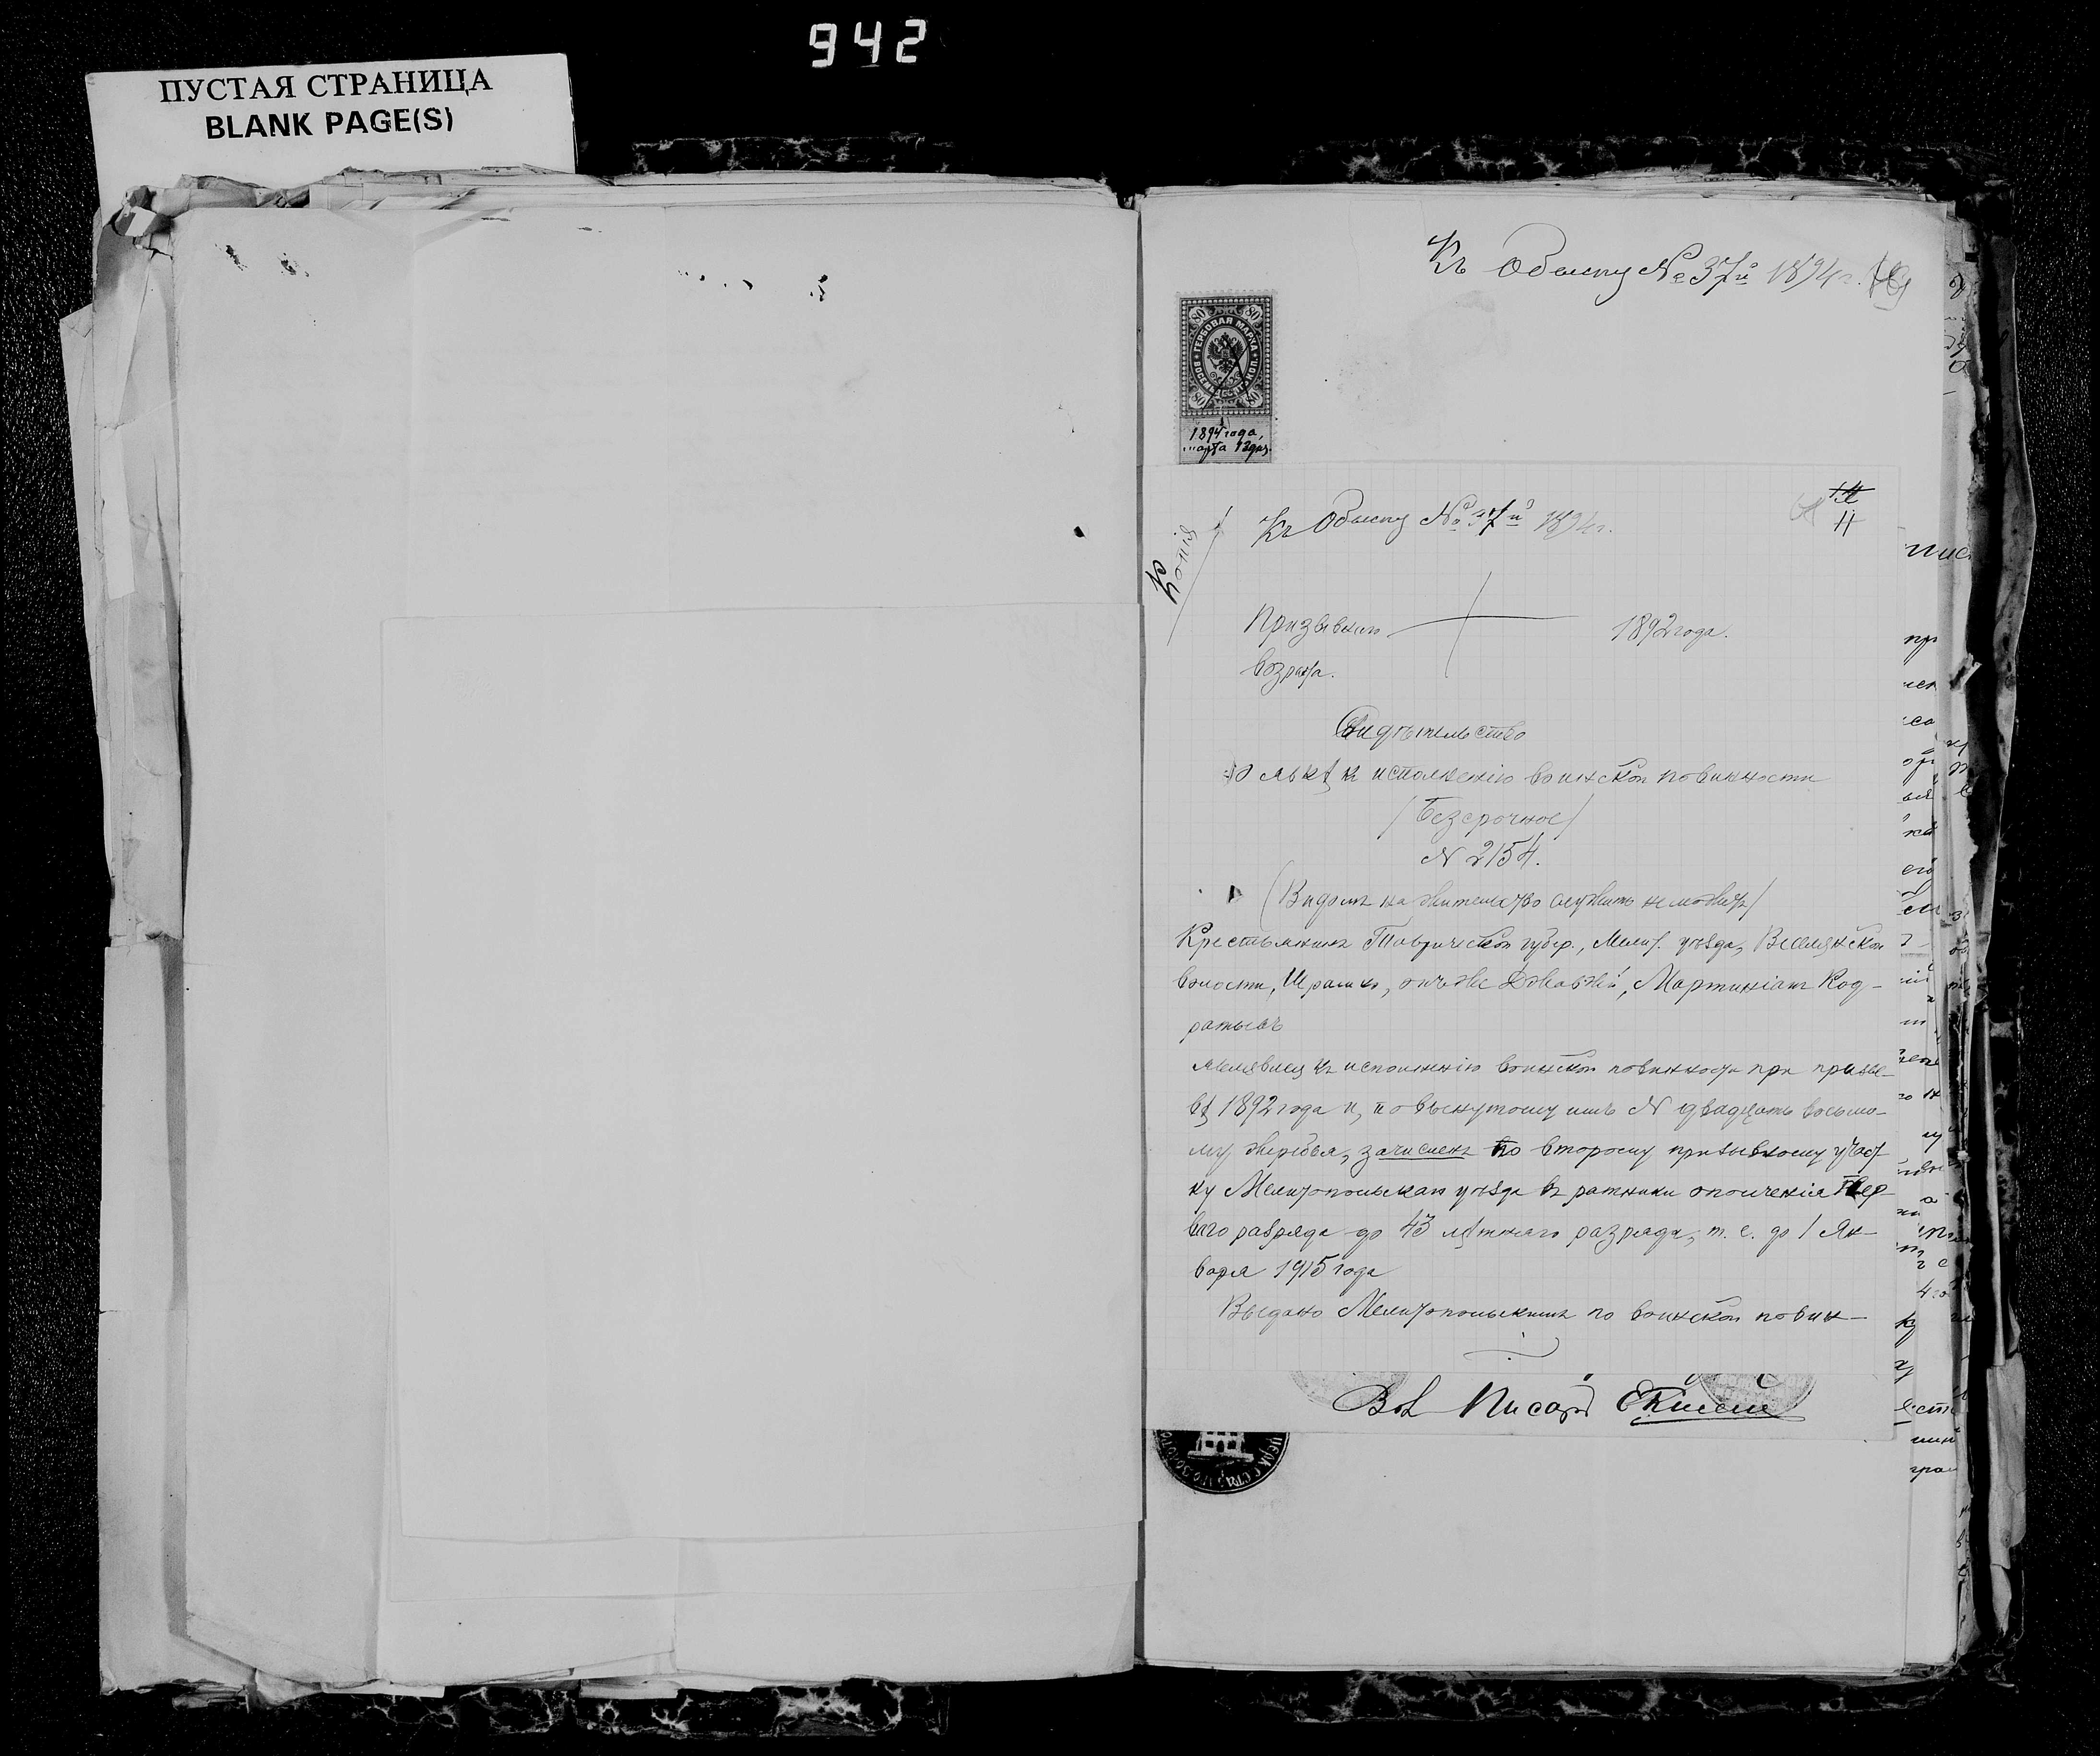 942
ПУСТАЯ СТРАНИЦА
BLANK PAGE(S)
Къ Обыску № 37й 1894 г.
80 80
ГЕРБОВАЯ МАРКА
80 80
1894 года,
марта 13 дня.
Копія
Къ Обыску № 37й 1894 г.
11
Призывнаго 1892 года.
возраста.
Свидѣтельство
о явкѣ къ исполненію воинской повинности
/Безсрочное/
N 2154.
(Видомъ на жительство служить не можетъ)
Крестьянинъ Таврической губер., Мелит. уѣзда, Веселянской
волости, Шрамко, онъ же Довжій, Мартиніанъ Код-
ратьевъ
являлся къ исполненію воинской повинности при призы-
вѣ 1892 года и, по вынутому имъ N двадцать восьмо-
му жеребья, зачисленъ по второму призывному участ-
ку Мелитопольскаго уѣзда въ ратники ополченія пер-
ваго разряда до 43 лѣтняго разряда, т. е. до 1 Ян-
варя 1915 года
Выдано Мелитопольскимъ по воинской повин-
Вол Писарь